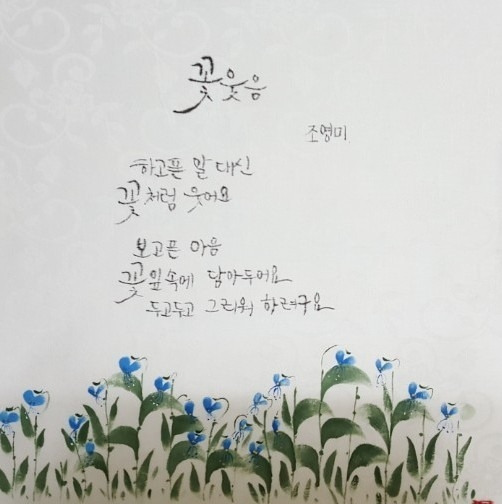 꽃웃음
조영미
하고픈 말 대신
꽃처럼 웃어요
보고픈 마음
꽃잎속에 담아두어요
두고두고 그리워 하려구요